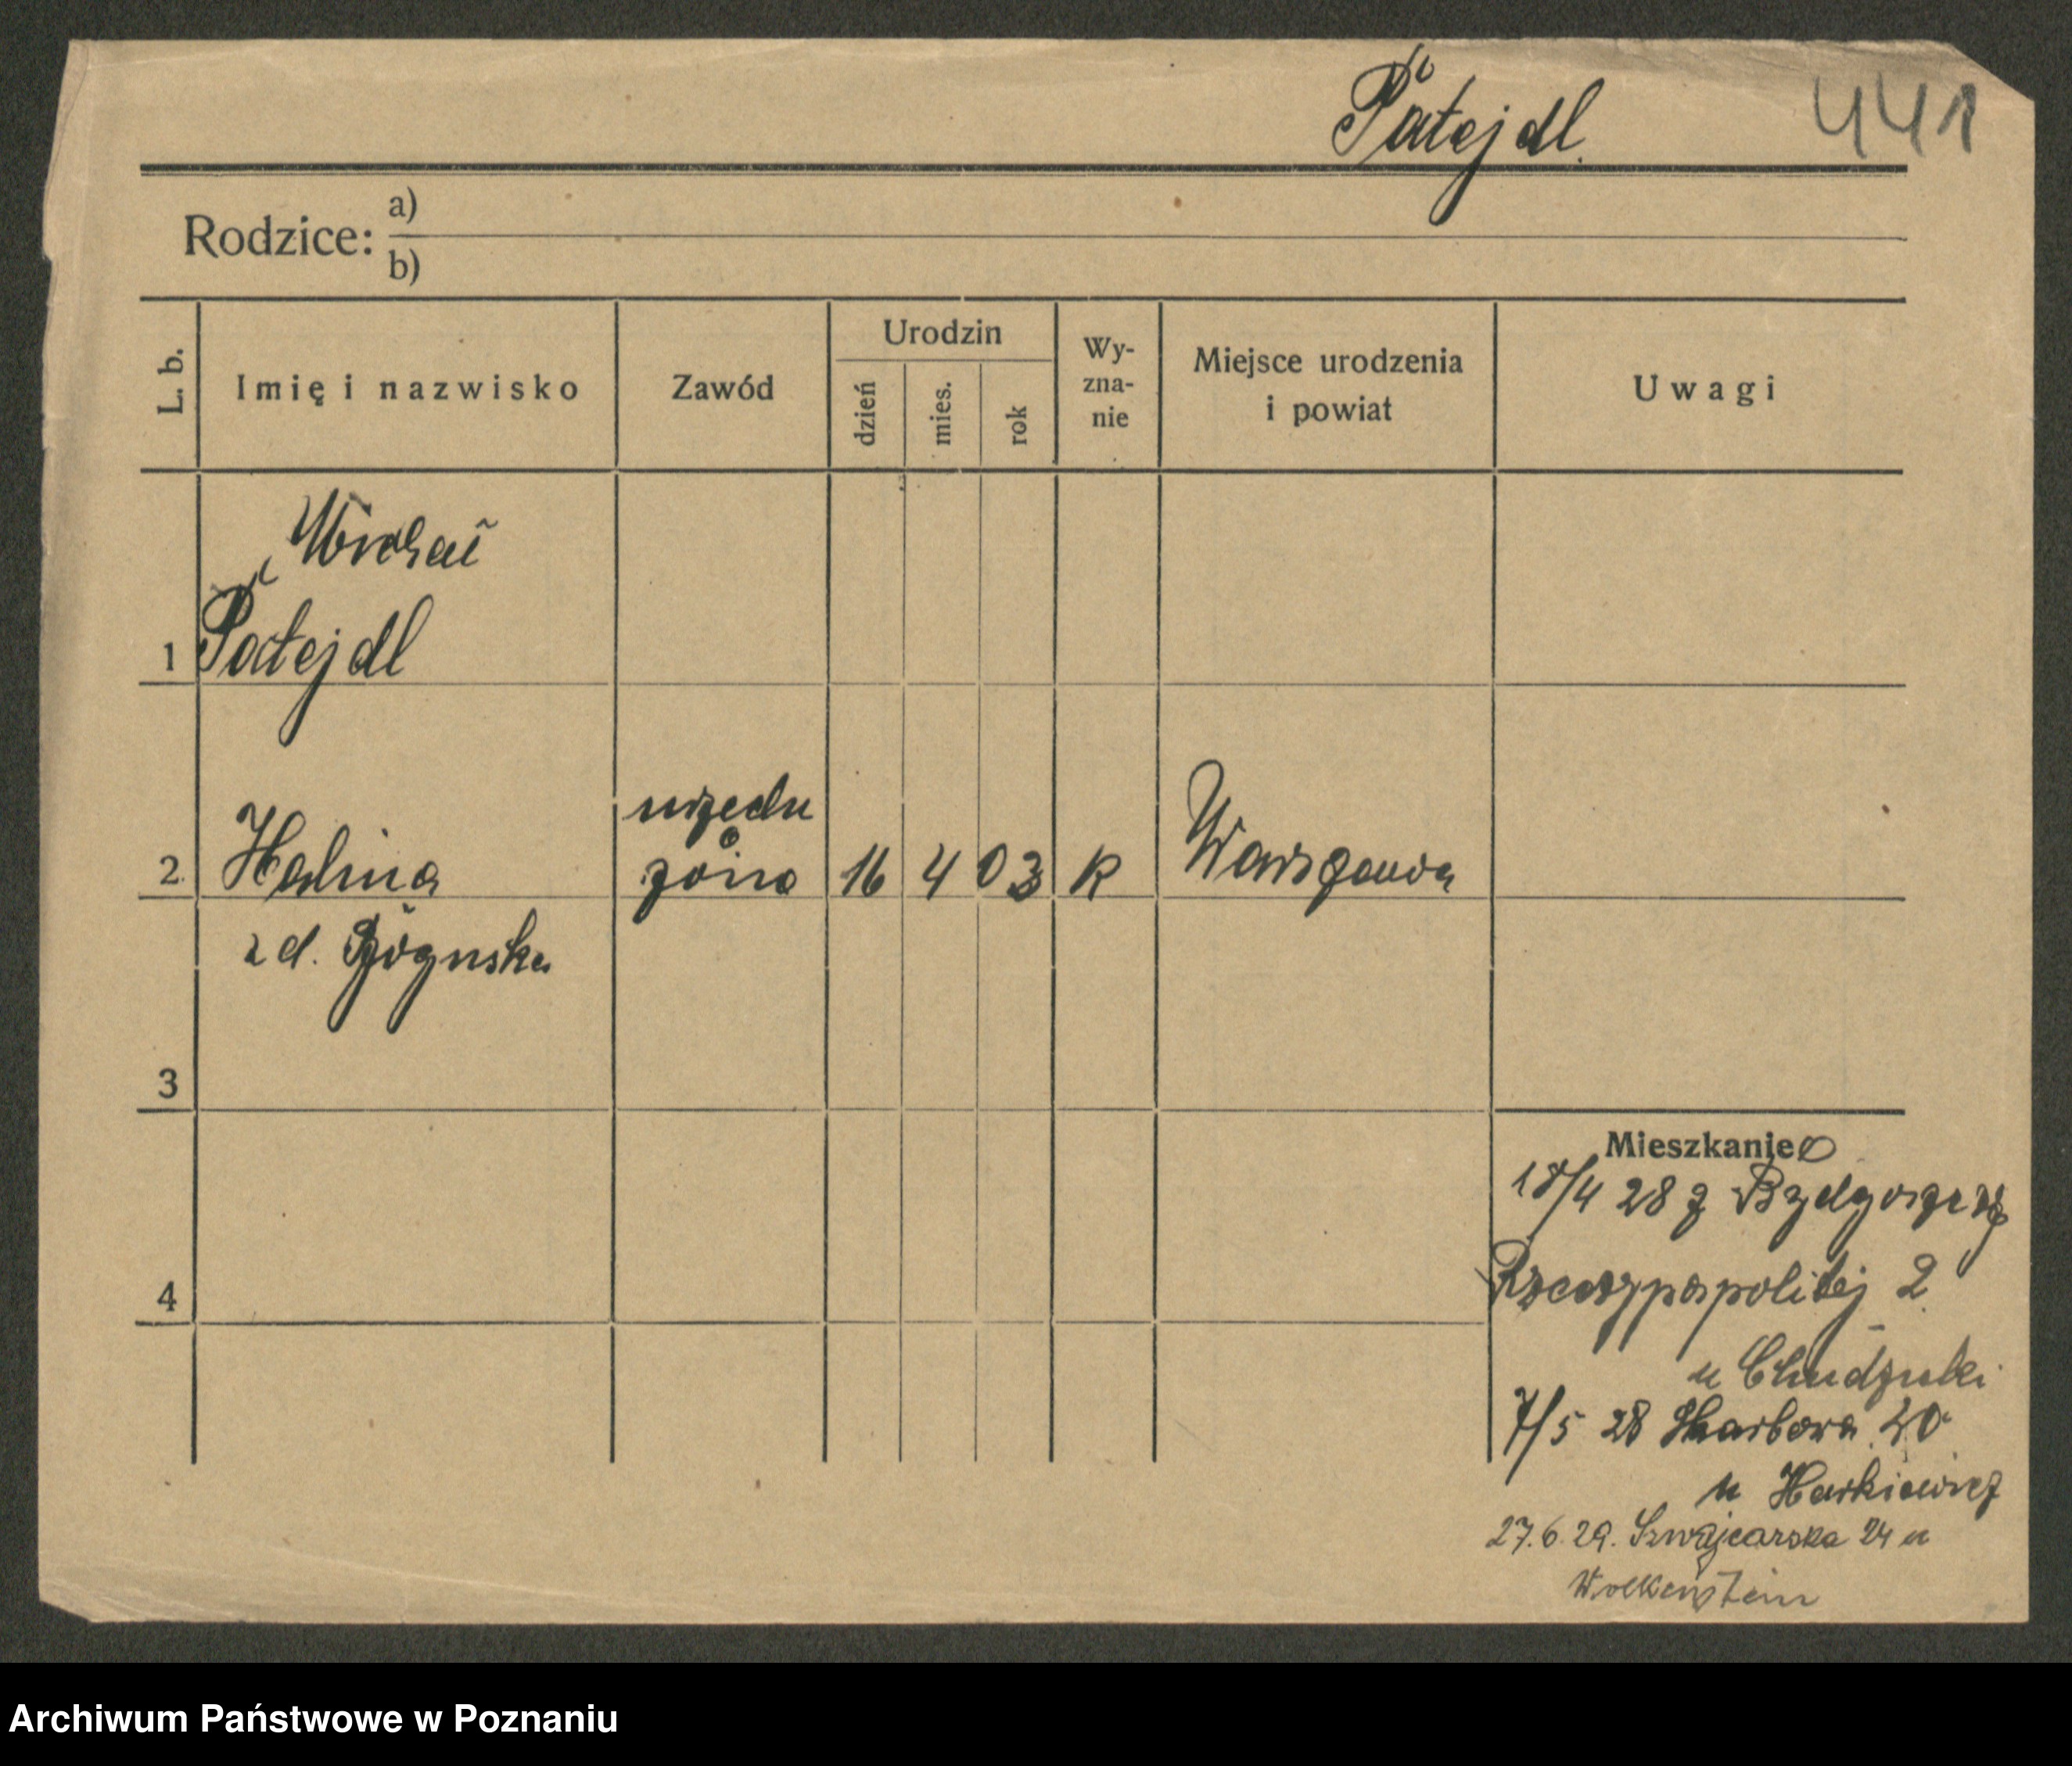 Patejdl.
441
Rodzice: a)
b)
L. b.
Imię i nazwisko
Zawód
Urodzin
dzień
mies.
rok
Wy-
zna-
nie
Miejsce urodzenia
i powiat
Uwagi
1
Patejdl
2
Halina
urzedn
żona
16 4 03
R
Warszawa
zd.
3
4
Mieszkanie
18/4 28 z Bydgoszczy
Rzeczypospolitej 2
u
7/5 28 Skarbowa 20
u Harkiewicz
27.6.29. Szwajcarska 24 u
Wolkenstein
Archiwum Państwowe w Poznaniu